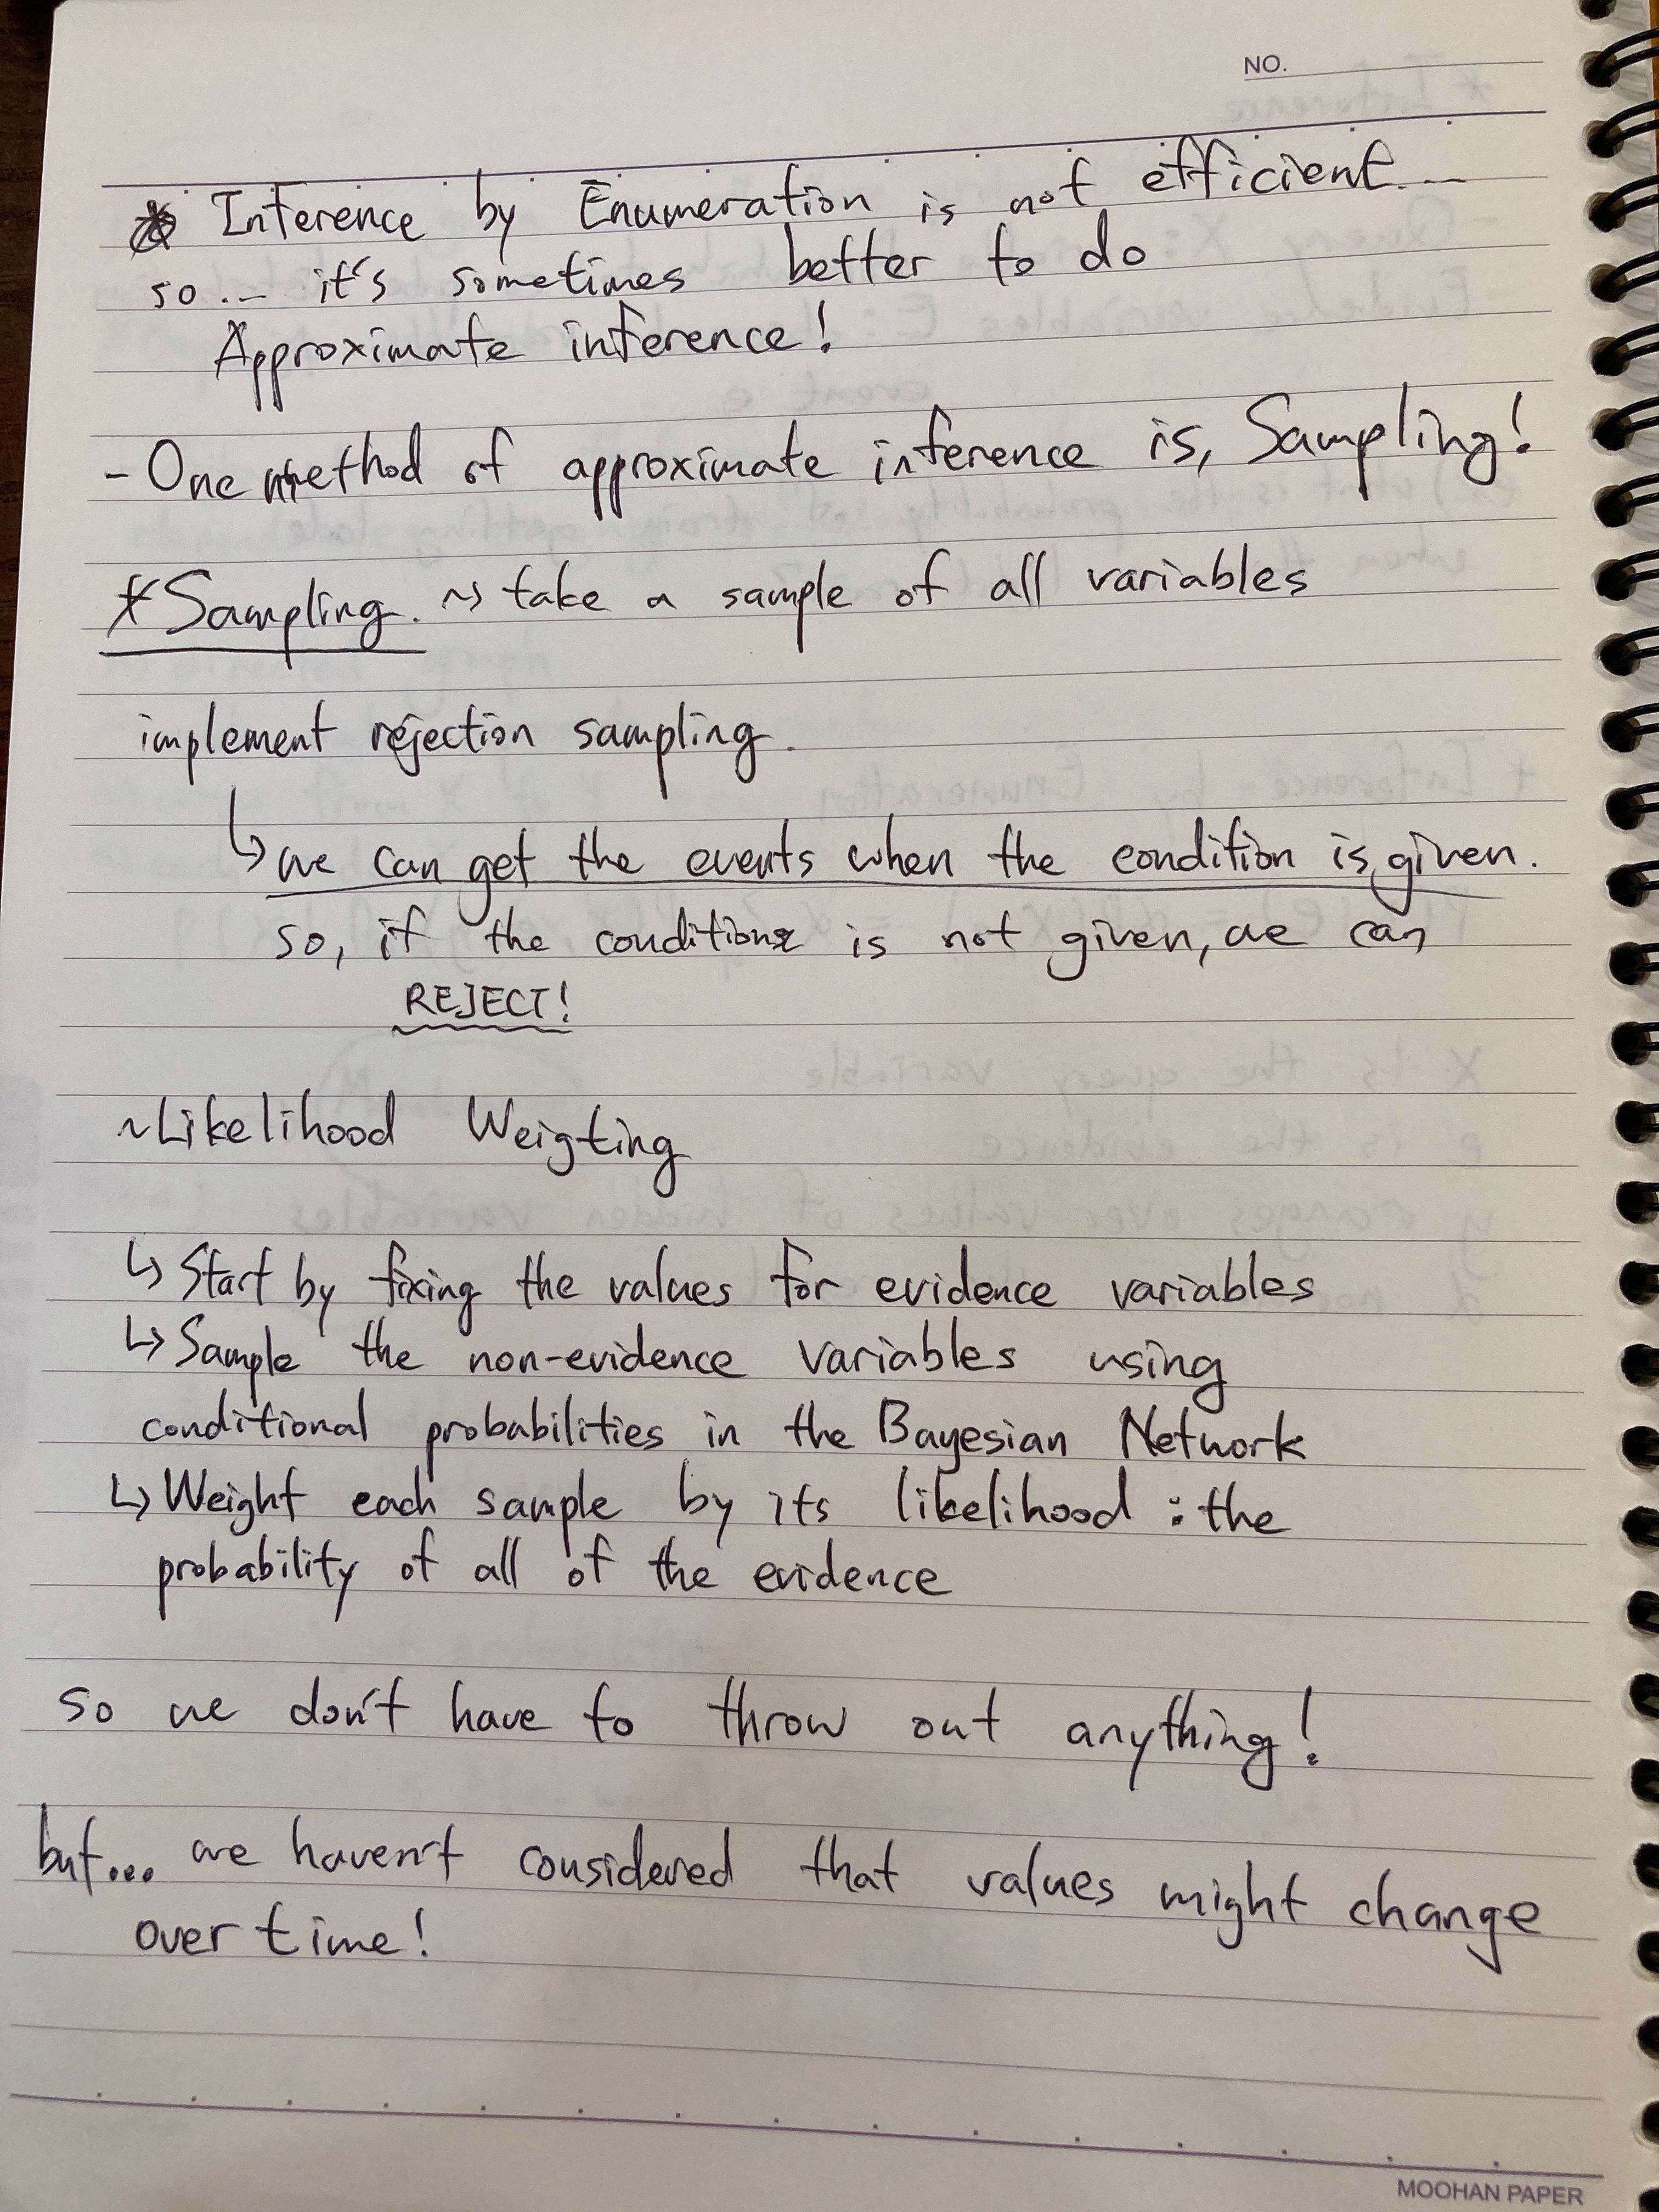 NO.
* Inference by Enumeration is not efficient...
so... it's sometimes better to do
Approximate inference!
- One method of approximate inference is, Sampling!
*Sampling. ~> take a sample of all variables
implement rejection sampling.
↳ we can get the events when the condition is given.
so, if the condition is not given, we can
REJECT!
~Likelihood Weigting
↳ Start by fixing the values for evidence variables
↳ Sample the non-evidence variables using
conditional probabilities in the Bayesian Network
↳ Weight each sample by its likelihood : the
probability of all of the evidence
so we don't have to throw out anything!
but... we haven't considered that values might change
over time!
MOOHAN PAPER